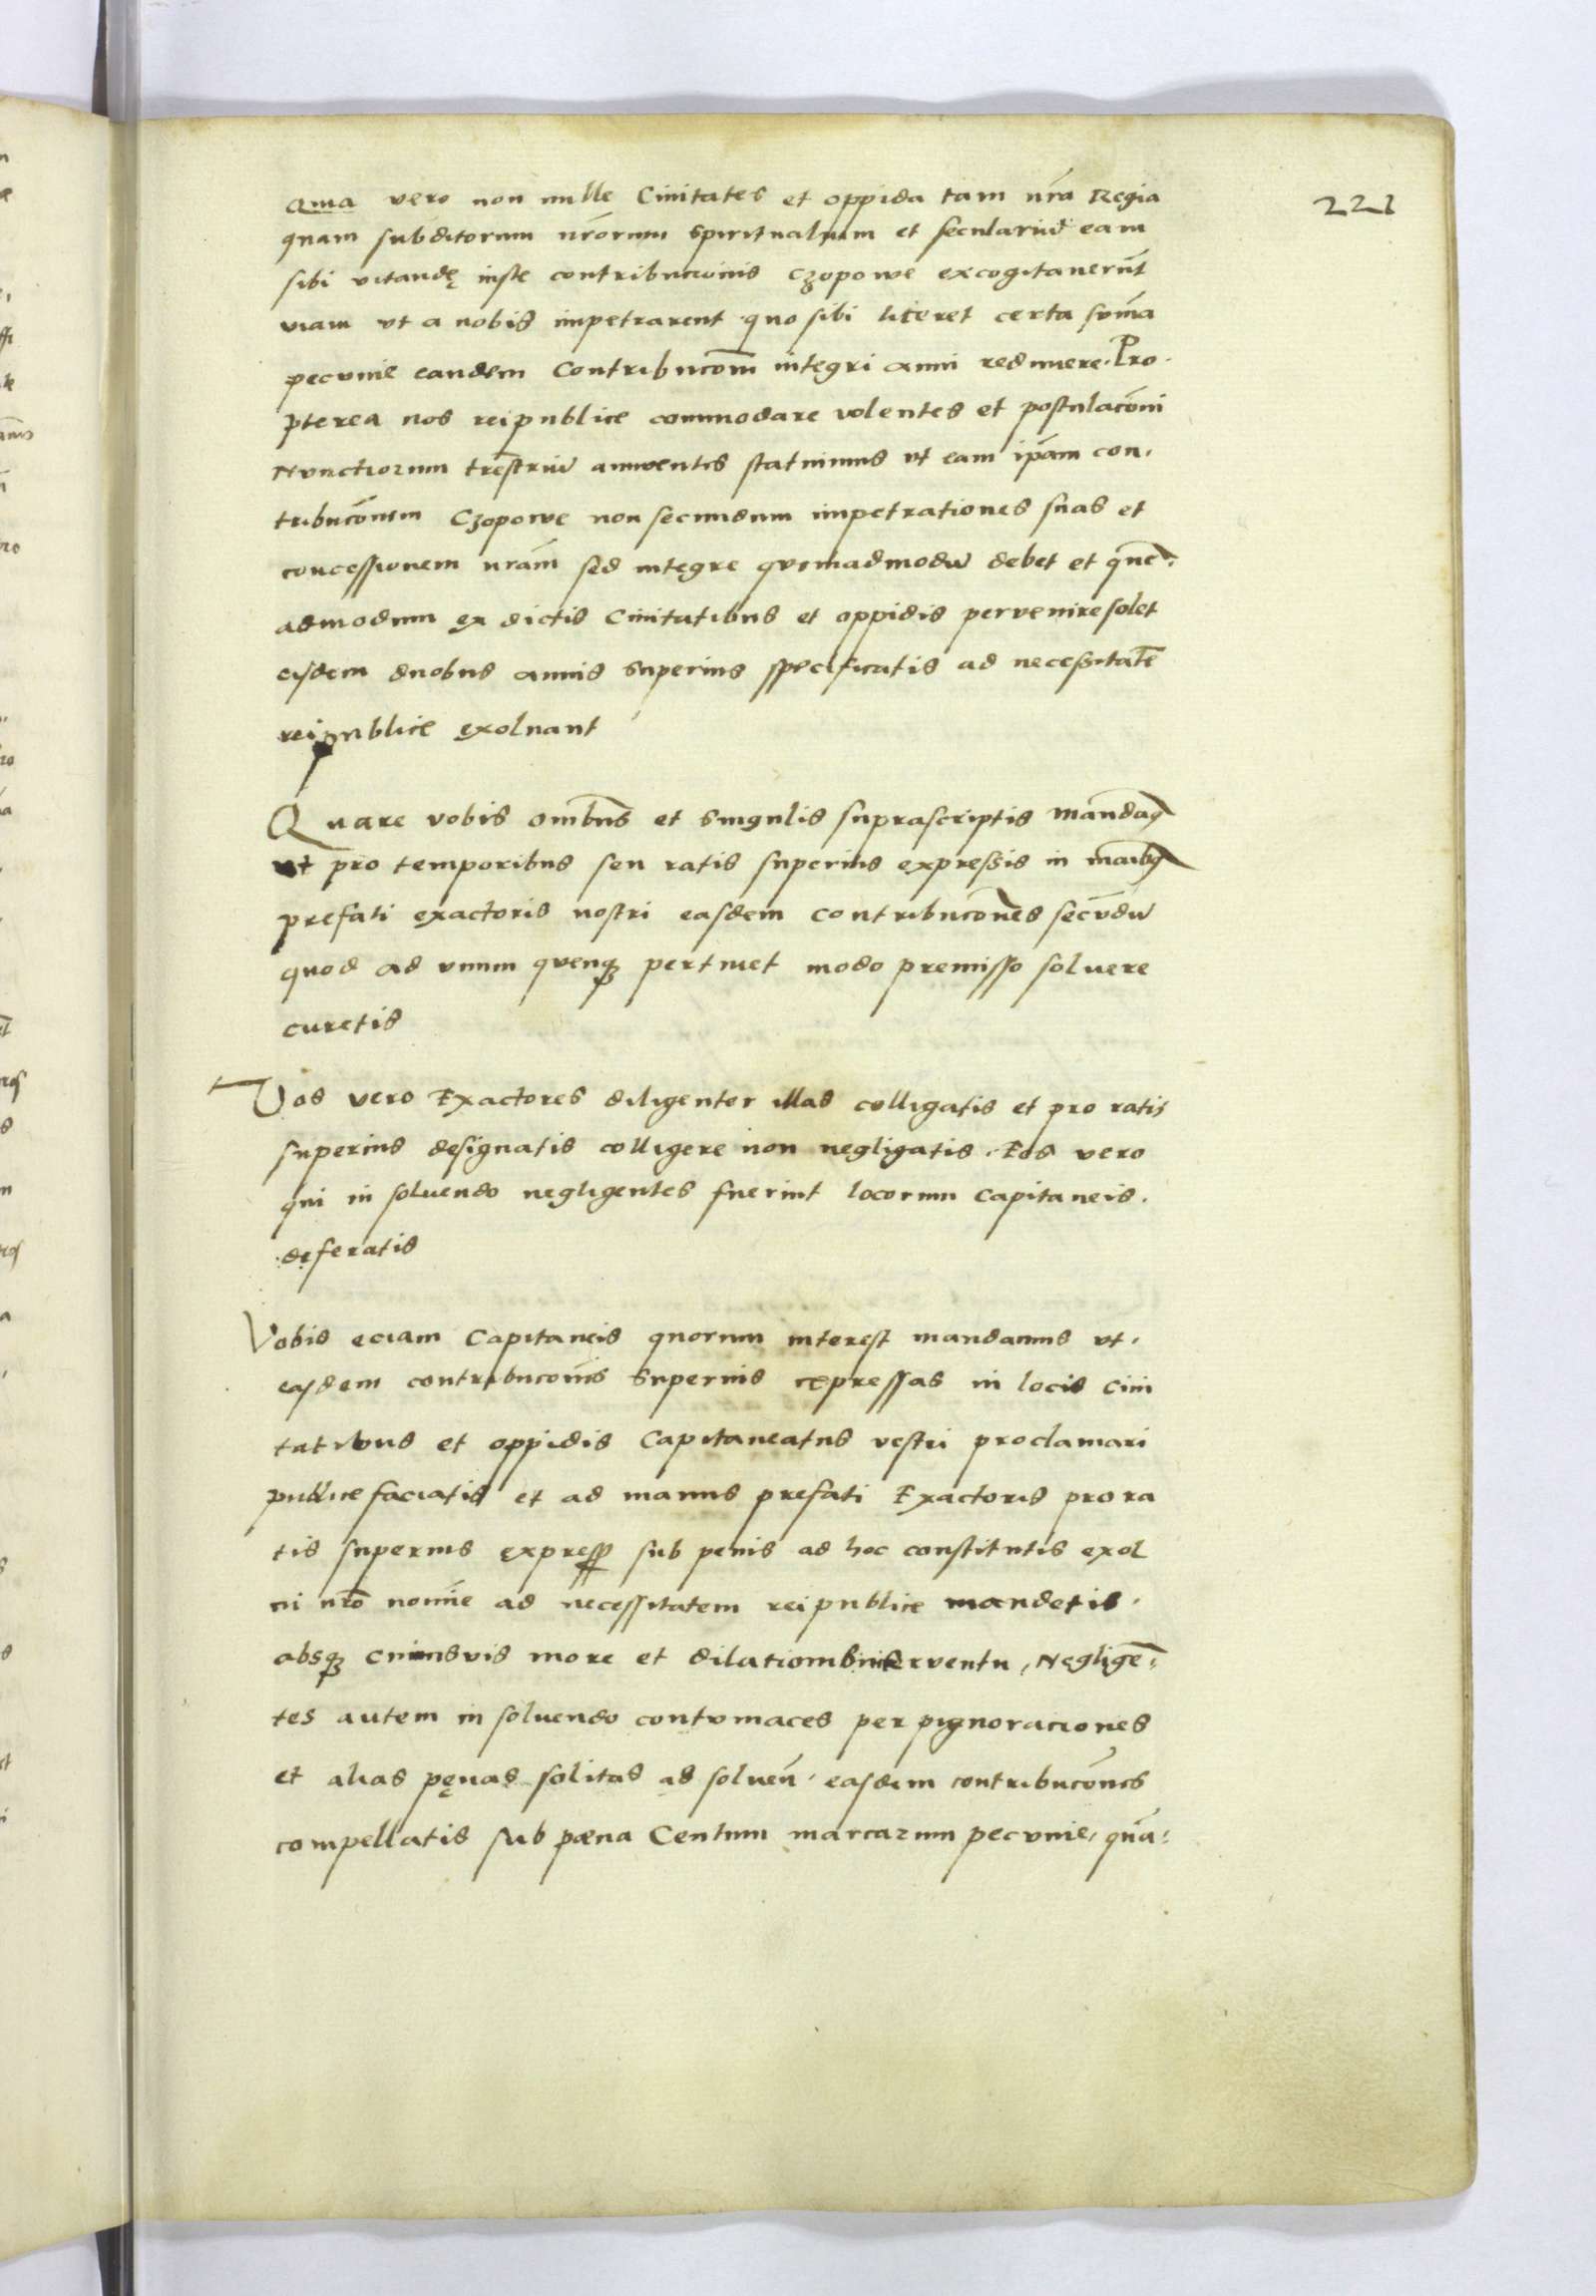 221
Quia vero non nulle Civitates et oppida tam nr̄a Regia
quam subditorum nr̄orum spiritualium et seculariū eam
sibi vitandę iuste contribucionis Czopowe excogitauerūt
viam vt a nobis impetrarent quo sibi liceret certa sūma
pecunie eandem Contribucōm integri anni redimere. Pro-
pterea nos reipublice commodare volentes et postulacōni
Nunctiorum tr̄estriū annuentes statuimus vt eam ip̄am con-
tribucōnem Czopowe non secundum impetrationes suas et
concessionem nr̄am sed integre quemadmodū debet et quē-
admodum ex dictis Civitatibus et oppidis pervenire solet
eisdem duobus annis superius specificatis ad necessitatē
reipublice exoluant
Quare vobis om̄ibus et singulis suprascriptis mandaꝫ
vt pro temporibus seu ratis superius expressis in man̄ibꝫ
prefati exactoris nostri easdem contribucōnes secūdū
quod ad vnum quenqꝫ pertinet modo premisso soluere
curetis
Vos vero Exactores diligenter illas colligatis et pro ratis
superius designatis colligere non negligatis. Eos vero
qui in soluendo negligentes fuerint locorum Capitaneis.
deferatis
Vobis eciam Capitaneis quorum interest mandamus vt.
easdem contribucōnes superius expressas in locis Civi
tatibus et oppidis Capitaneatus vestri proclamari
publice faciatis et ad manus prefati Exactoris pro ra
tis superius express sub penis ad hoc constitutis exol
ui nr̄o nomīe ad necessitatem reipublice mandetis.
absqꝫ cuiusvis more et dilationis interventu, Negligē-
tes autem in soluendo contumaces per pignoraciones
et alias pęnas solitas ad soluen̄. easdem contribucōnes
compellatis sub pæna Centum marcarum pecunie, quā-